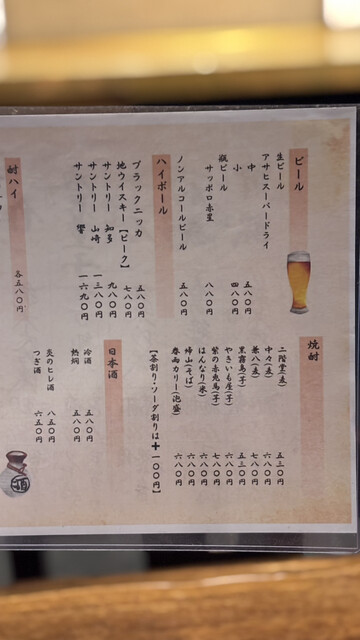 ビール
生ビール
アサヒスーパードライ
中 五八〇円
小 四八〇円
瓶ビール
サッポロ赤星 八八〇円
ノンアルコールビール 五八〇円
ハイボール
ブラックニッカ 五八〇円
地ウイスキー【ピーク】 七八〇円
サントリー 知多 九八〇円
サントリー 山崎 一三八〇円
サントリー 響 一六九〇円
酎ハイ
各五八〇円
焼酎
二階堂(麦) 五三〇円
中々(麦) 六八〇円
兼八(麦) 七八〇円
黒霧島(芋) 五三〇円
やきいも屋(芋) 六八〇円
紫の赤兎馬(芋) 七八〇円
はんなり(米) 六八〇円
帰山(そば) 六八〇円
春雨カリー(泡盛) 六八〇円
【茶割り・ソーダ割りは＋一〇〇円】
日本酒
冷酒 五八〇円
熱燗 五八〇円
炙のヒレ酒 八五〇円
つぎ酒 六五〇円
酒